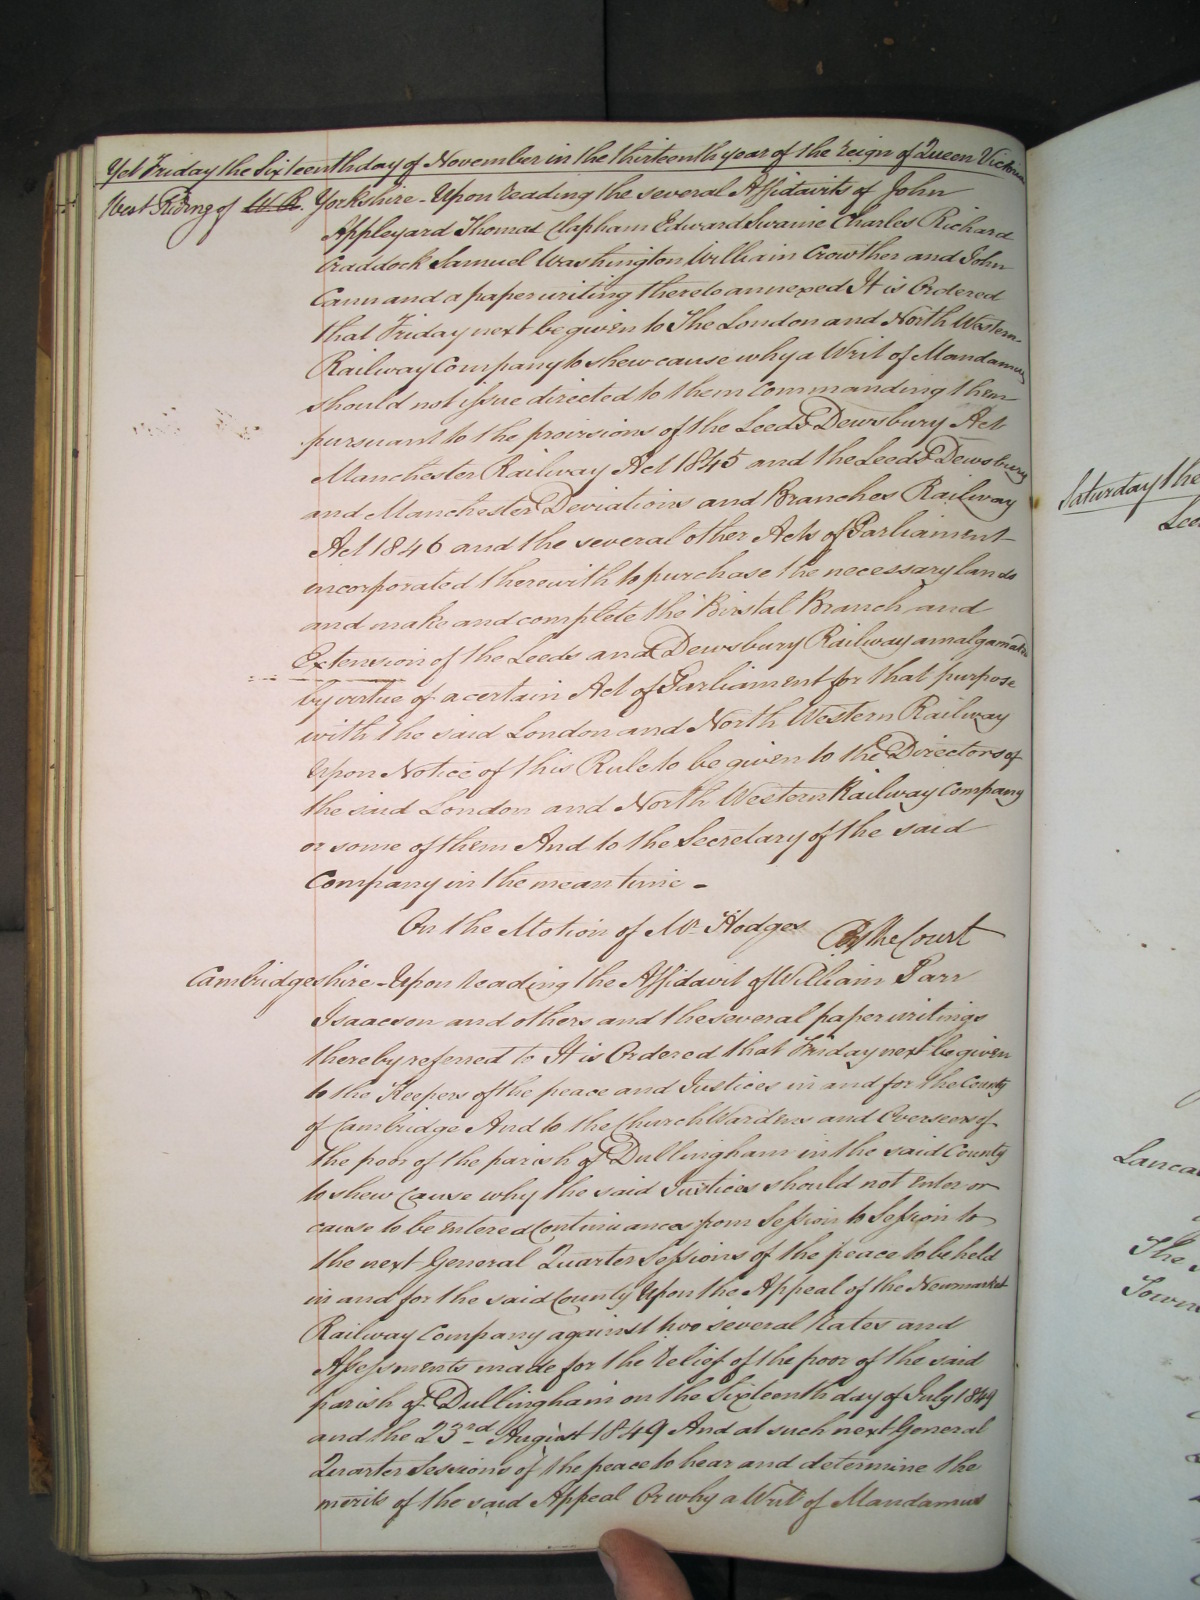 Yet Friday the Sixteenth day of November in the thirteenth year of the reign of Queen Victoria
West Riding of W. R. Yorkshire - Upon reading the several Affidavits of John
Appleyard Thomas Clapham Edward Swaine Charles Richard
Craddock Samuel Washington William Crowther and John
Cann and a paper writing thereto annexed It is Ordered
that Friday next be given to The London and North Western
Railway Company to shew cause why a Writ of Mandamus
should not issue directed to them commanding them
pursuant to the provisions of the Leeds Dewsbury Act
Manchester Railway Act 1845 and the Leeds Dewsbury
and Manchester Deviations and Branches Railway
Act 1846 and the several other Acts of Parliament
incorporated therewith to purchase the necessary lands
and make and complete the Birstal Branch and
Extension of the Leeds and Dewsbury Railway amalgamated
by virtue of a certain Act of Parliament for that purpose
with the said London and North Western Railway
Upon Notice of this Rule to be given to the Directors of
the said London and North Western Railway Company
or some of them And to the Secretary of the said
Company in the mean time -
On the Motion of Mr. Hodges By the Court
Cambridgeshire - Upon reading the Affidavit of William Parr
Isaacson and others and the several paper writings
thereby referred to It is Ordered that Friday next be given
to the Keepers of the peace and Justices in and for the County
of Cambridge And to the Church Wardens and Overseers of
the poor of the parish of Dullingham in the said County
to shew cause why the said Justices should not enter or
cause to be entered Continuances from Session to Session to
the next General Quarter Sessions of the peace to be held
in and for the said County Upon the Appeal of the Newmarket
Railway Company against two several Rates and
Assessments made for the relief of the poor of the said
parish of Dullingham on the Sixteenth day of July 1849
and the 23rd August 1849 And at such next General
Quarter Sessions of the peace to hear and determine the
merits of the said Appeal Or why a Writ of Mandamus
Saturday the
Lanca
The
Town